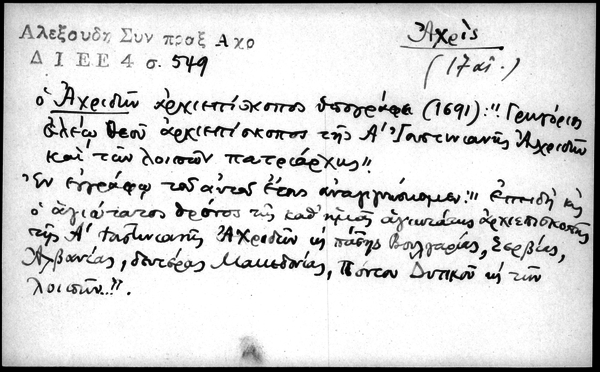 Αλεξουδη Συν πραξ Αχο
Ἀχρὶς
Δ Ι Ε Ε 4 σ. 549
(17 αἰ.)
ὁ Ἀχριδῶν ἀρχιεπίσκοπος ὑπογράφει (1691): "Γρηγόριος
ἐλέῳ Θεοῦ ἀρχιεπίσκοπος τῆς Α' Ἰουστινιανῆς Ἀχριδῶν
καὶ τῶν λοιπῶν πατριάρχης".
Ἐν ἐγγράφῳ τοῦ αὐτοῦ ἔτους ἀναγιγνώσκομεν: "Ἐπειδὴ κὴ
ὁ ἁγιώτατος θρόνος τῆς καθ' ἡμᾶς ἁγιωτάτης ἀρχιεπισκοπῆς
τῆς Α' Ἰουστινιανῆς Ἀχριδῶν κὴ πάσης Βουλγαρίας, Σερβίας,
Ἀλβανίας, δευτέρας Μακεδονίας, Πόντου Δυτικοῦ κὴ τῶν
λοιπῶν..".